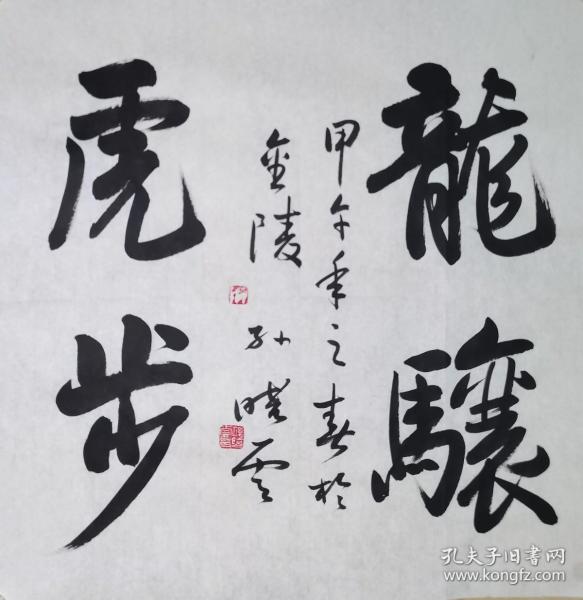 龍驤
甲午年之春於
金陵 孙晓云
虎步
孔夫子旧书网
www.kongfz.com